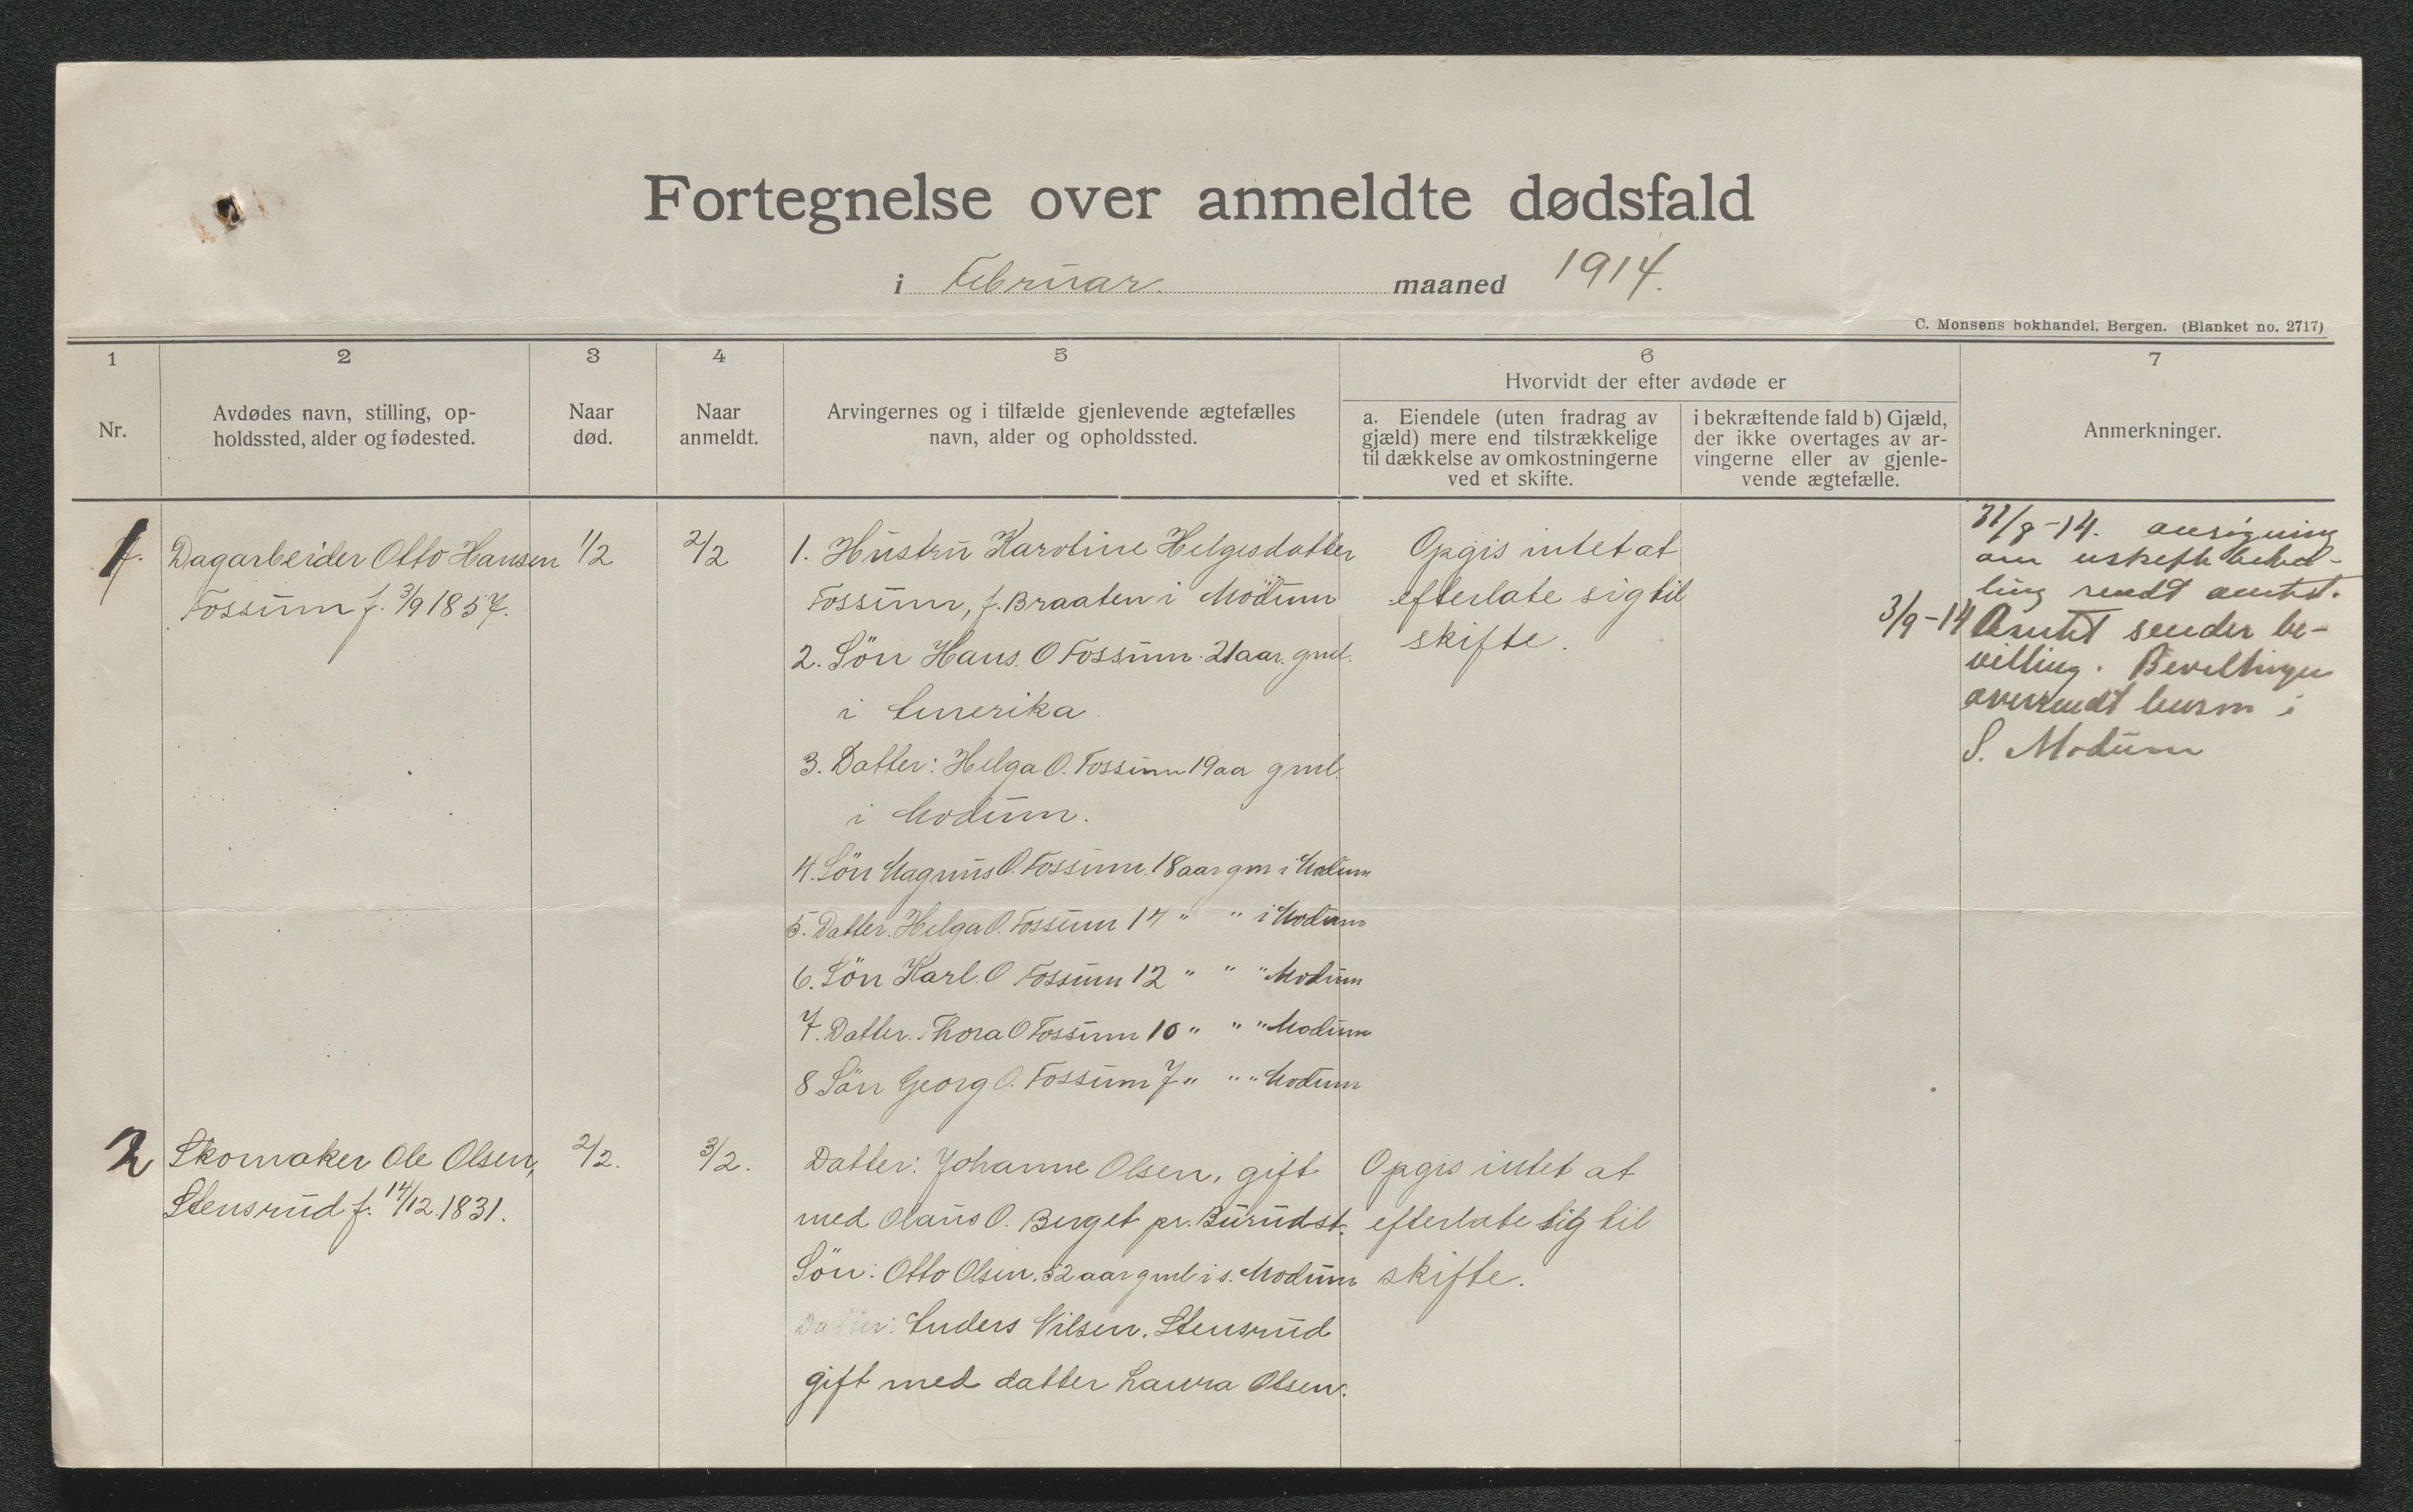 Fortegnelse over anmeldte dødsfald
i Februar maaned 1914.
C. Monsens bokhandel, Bergen. (Blanket no. 2717)
1
Nr.
2
Avdødes navn, stilling, op-
holdssted, alder og fødested.
3
Naar
død.
4
Naar
anmeldt.
5
Arvingernes og i tilfælde gjenlevende ægtefælles
navn, alder og opholdssted.
6
Hvorvidt der efter avdøde er
a. Eiendele (uten fradrag av
gjæld) mere end tilstrækkelige
til dækkelse av omkostningerne
ved et skifte.
i bekræftende fald b) Gjæld,
der ikke overtages av ar-
vingerne eller av gjenle-
vende ægtefælle.
7
Anmerkninger.
1.
Dagarbeider Otto Hansen
Fossum f. 3/9 1857.
1/2
2/2
1. Hustru Karoline Helgesdatter
Fossum, f. Braaten i Modum
2. Søn Hans. O Fossum. 21 aar. gml.
i Amerika
3. Datter: Helga O. Fossum 19 aa gml.
i Modum.
4. Søn Magnus O. Fossum. 18 aar gm i Modum
5. Datter. Helga O. Fossum 14 " " i Modum
6. Søn Karl. O Fossum 12 " " " Modum
7. Datter. Thora O Fossum 10 " " " Modum
8 Søn Georg O. Fossum 7 " " " Modum
Opgis intet at
efterlate sig til
skifte.
31/8-14. ansøgning
om uskifte bevil-
ling sendt amtet.
3/9-14 Amtet sender be-
villing. Bevillingen
oversendt lensm i
S. Modum
2
Skomaker Ole Olsen,
Stensrud f. 14/12.1831.
2/2.
3/2.
Datter: Johanne Olsen, gift
med Olaus O. Berget pr. Burudst.
Søn: Otto Olsen. 52 aar gml i s. Modum
Datter: Anders Nilsen. Stensrud
gift med datter Laura Olsen.
Opgis intet at
efterlate sig til
skifte.